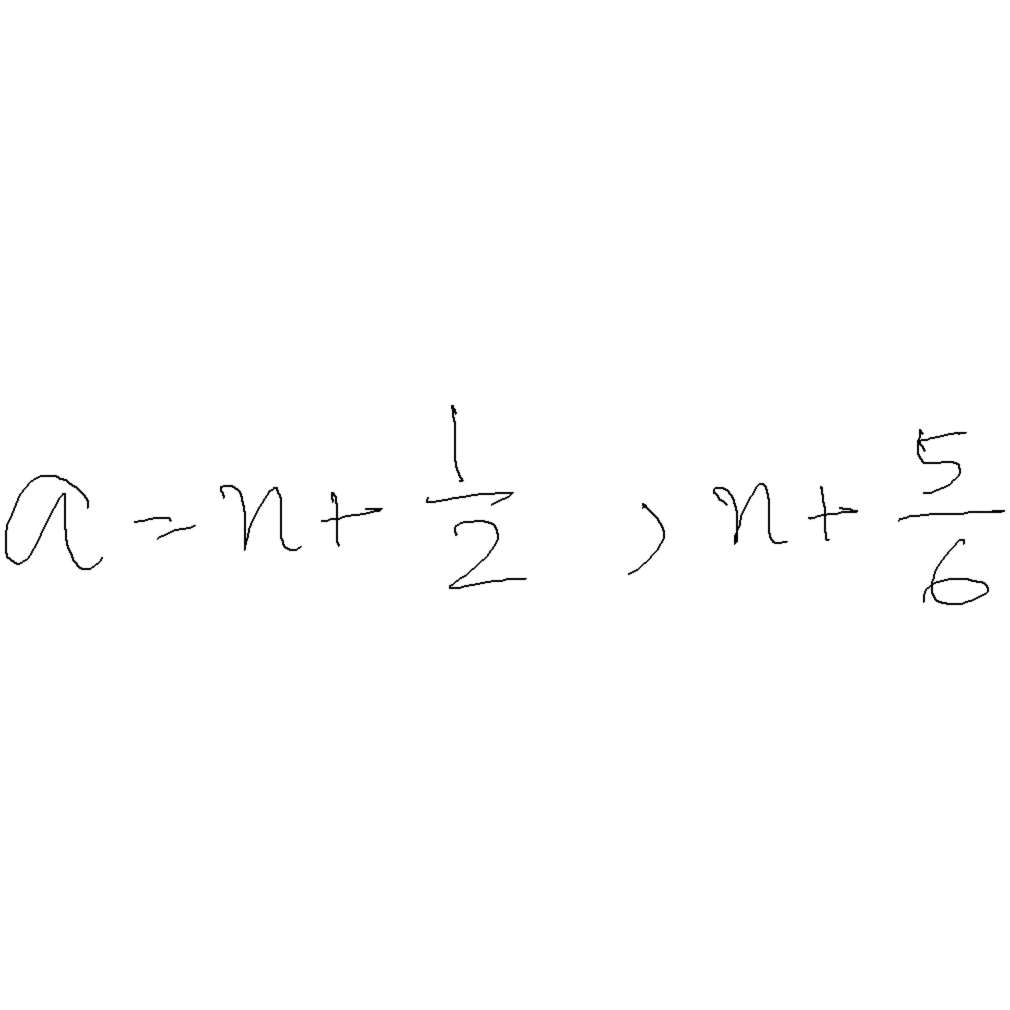 a = n + \frac{1}{2} , n + \frac{5}{6}